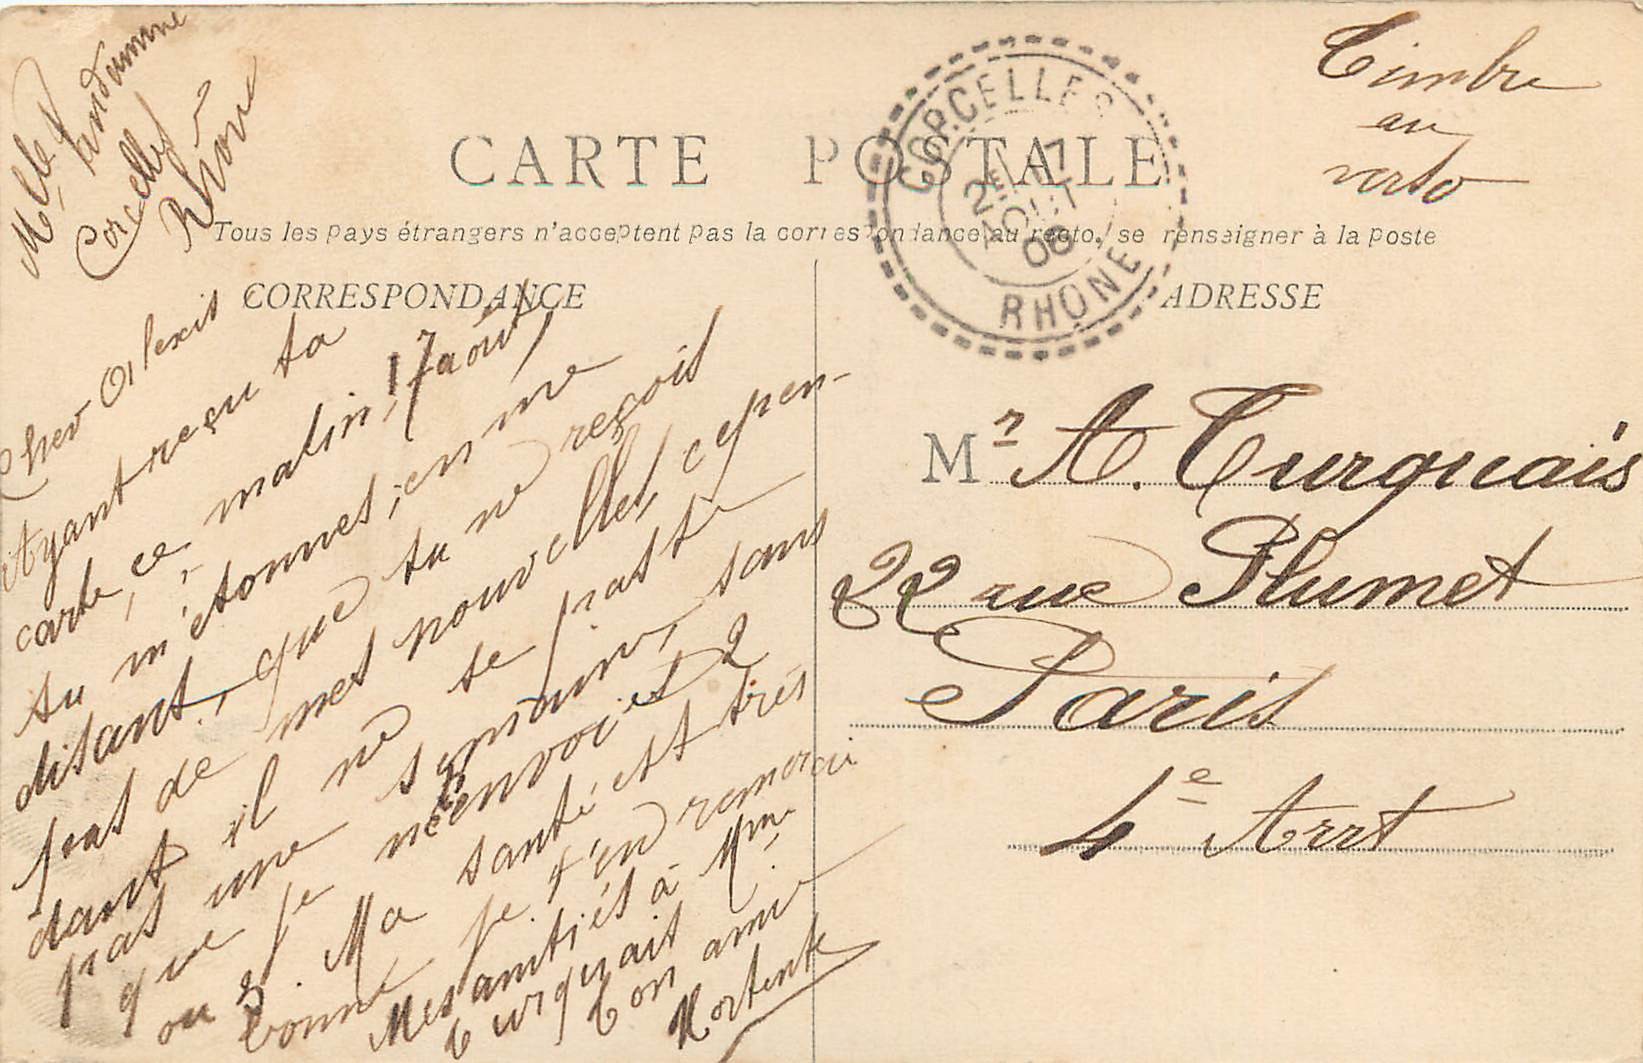 Mlle Vandamme
Corcelles
Rhône
Timbre
au
verso
CORCELLES
2E 17
AOUT
06
RHÔNE
CARTE POSTALE
Tous les pays étrangers n'acceptent pas la correspondance au recto, se renseigner à la poste
CORRESPONDANCE
ADRESSE
Cher Alexis
17 août
Ayant reçu ta
carte, ce matin,
tu m'étonnes, en me
disant, que tu ne reçois
pas de mes nouvelles, cepen-
dant il ne se passe
pas une semaine, sans
que je n'envoies 2
ou 3. Ma santé est très
bonne je t'en remercie
Mes amitiés à Mme
Turquais
Ton ami
Hortente
Mr A. Turquais
22 rue Plumet
Paris
4e Arrt